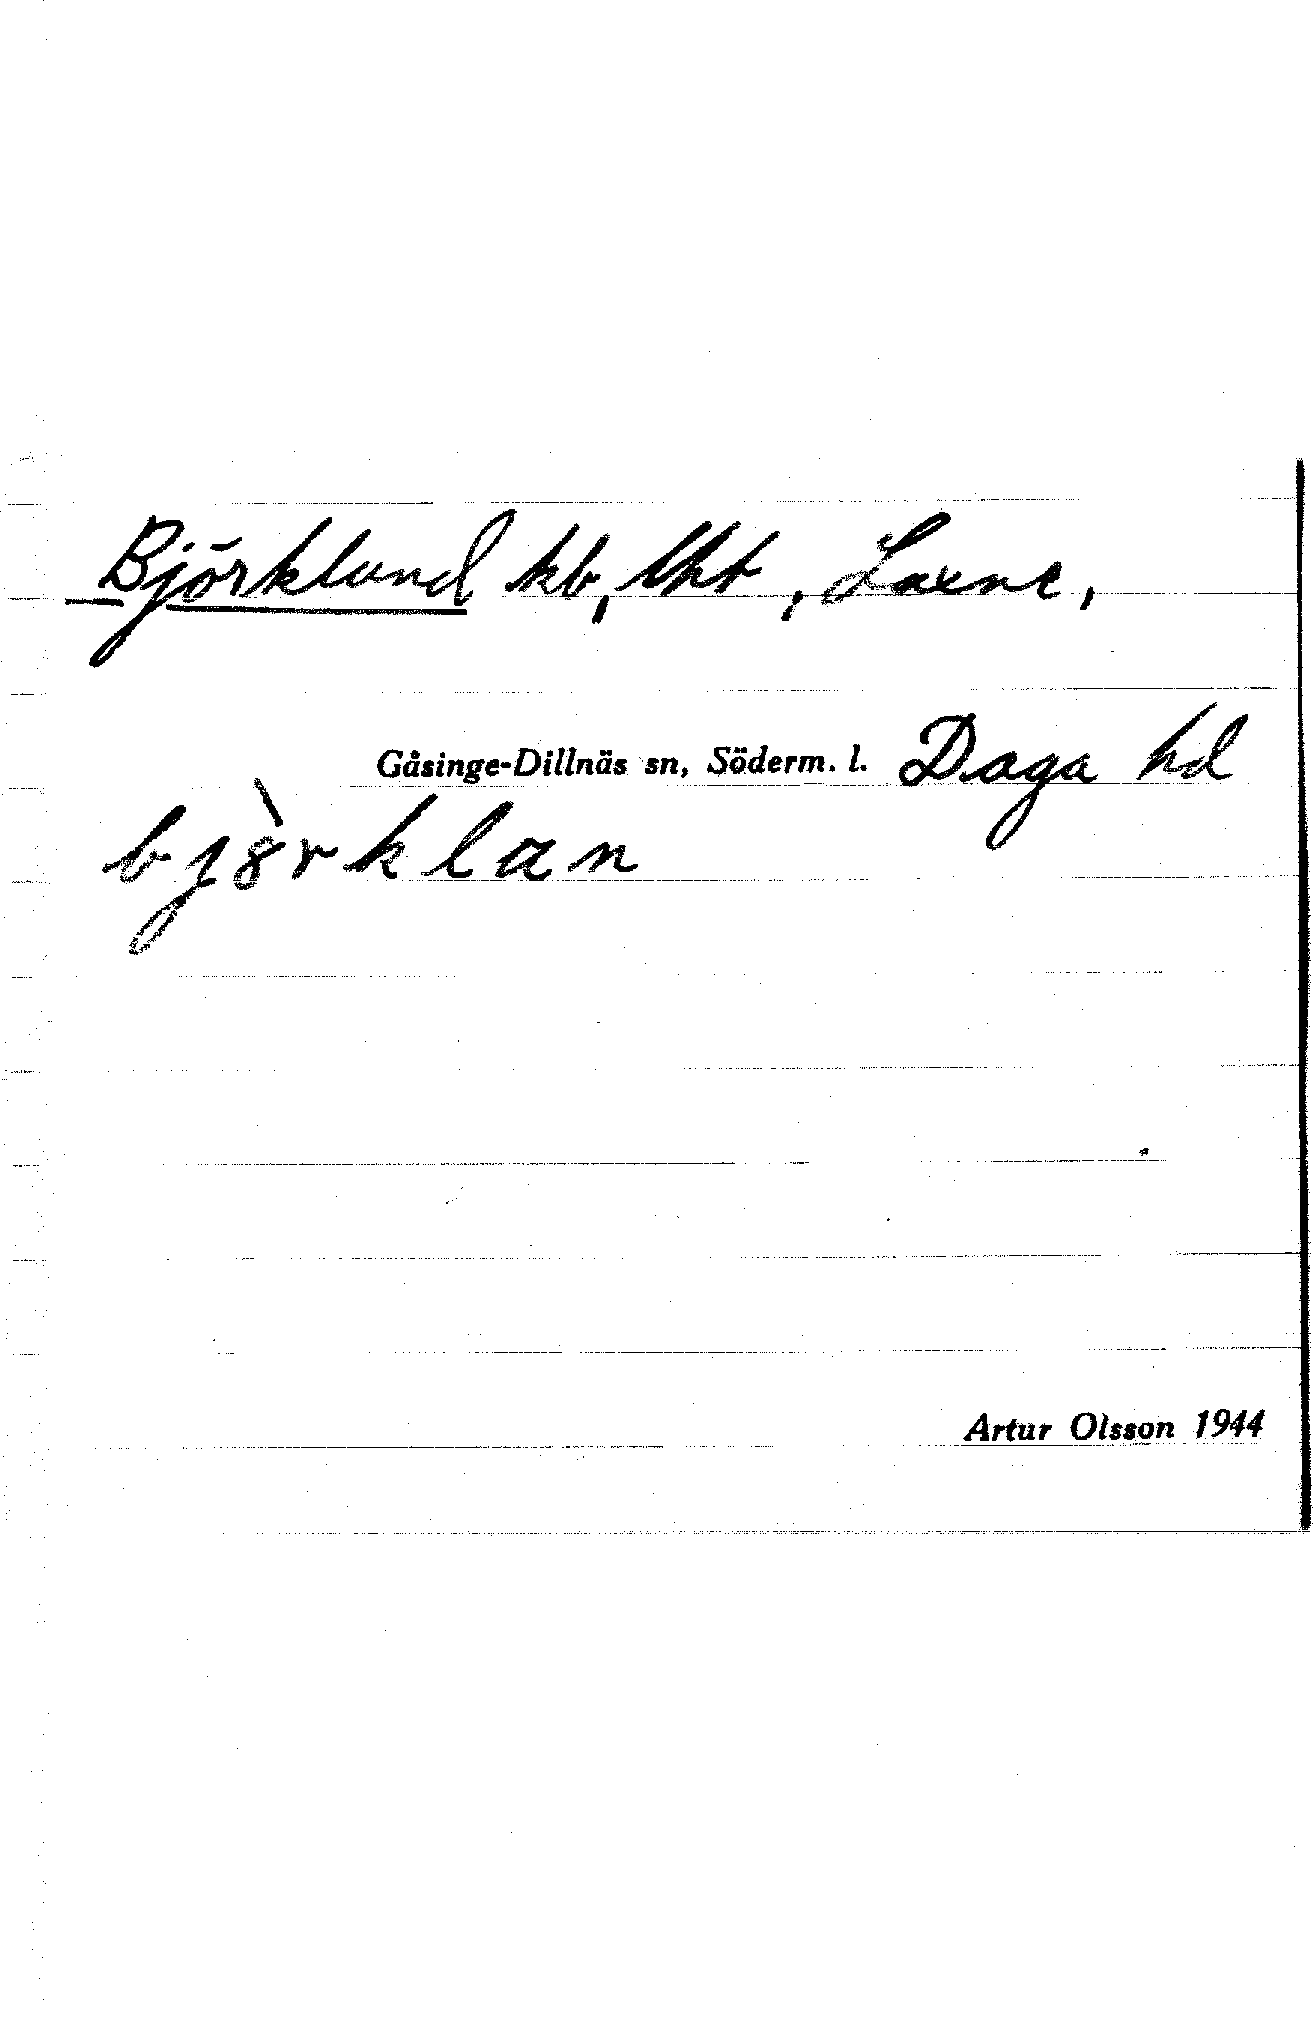 Björklund kb, lht, Laxne,
Gåsinge-Dillnäs sn, Söderm. l. Daga hd
bjö̀rklan
Artur Olsson 1944